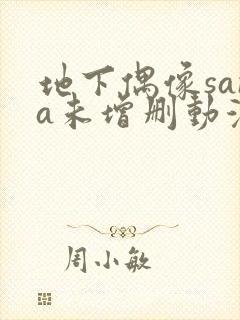 地下偶像sa
a未增删动
周小敏